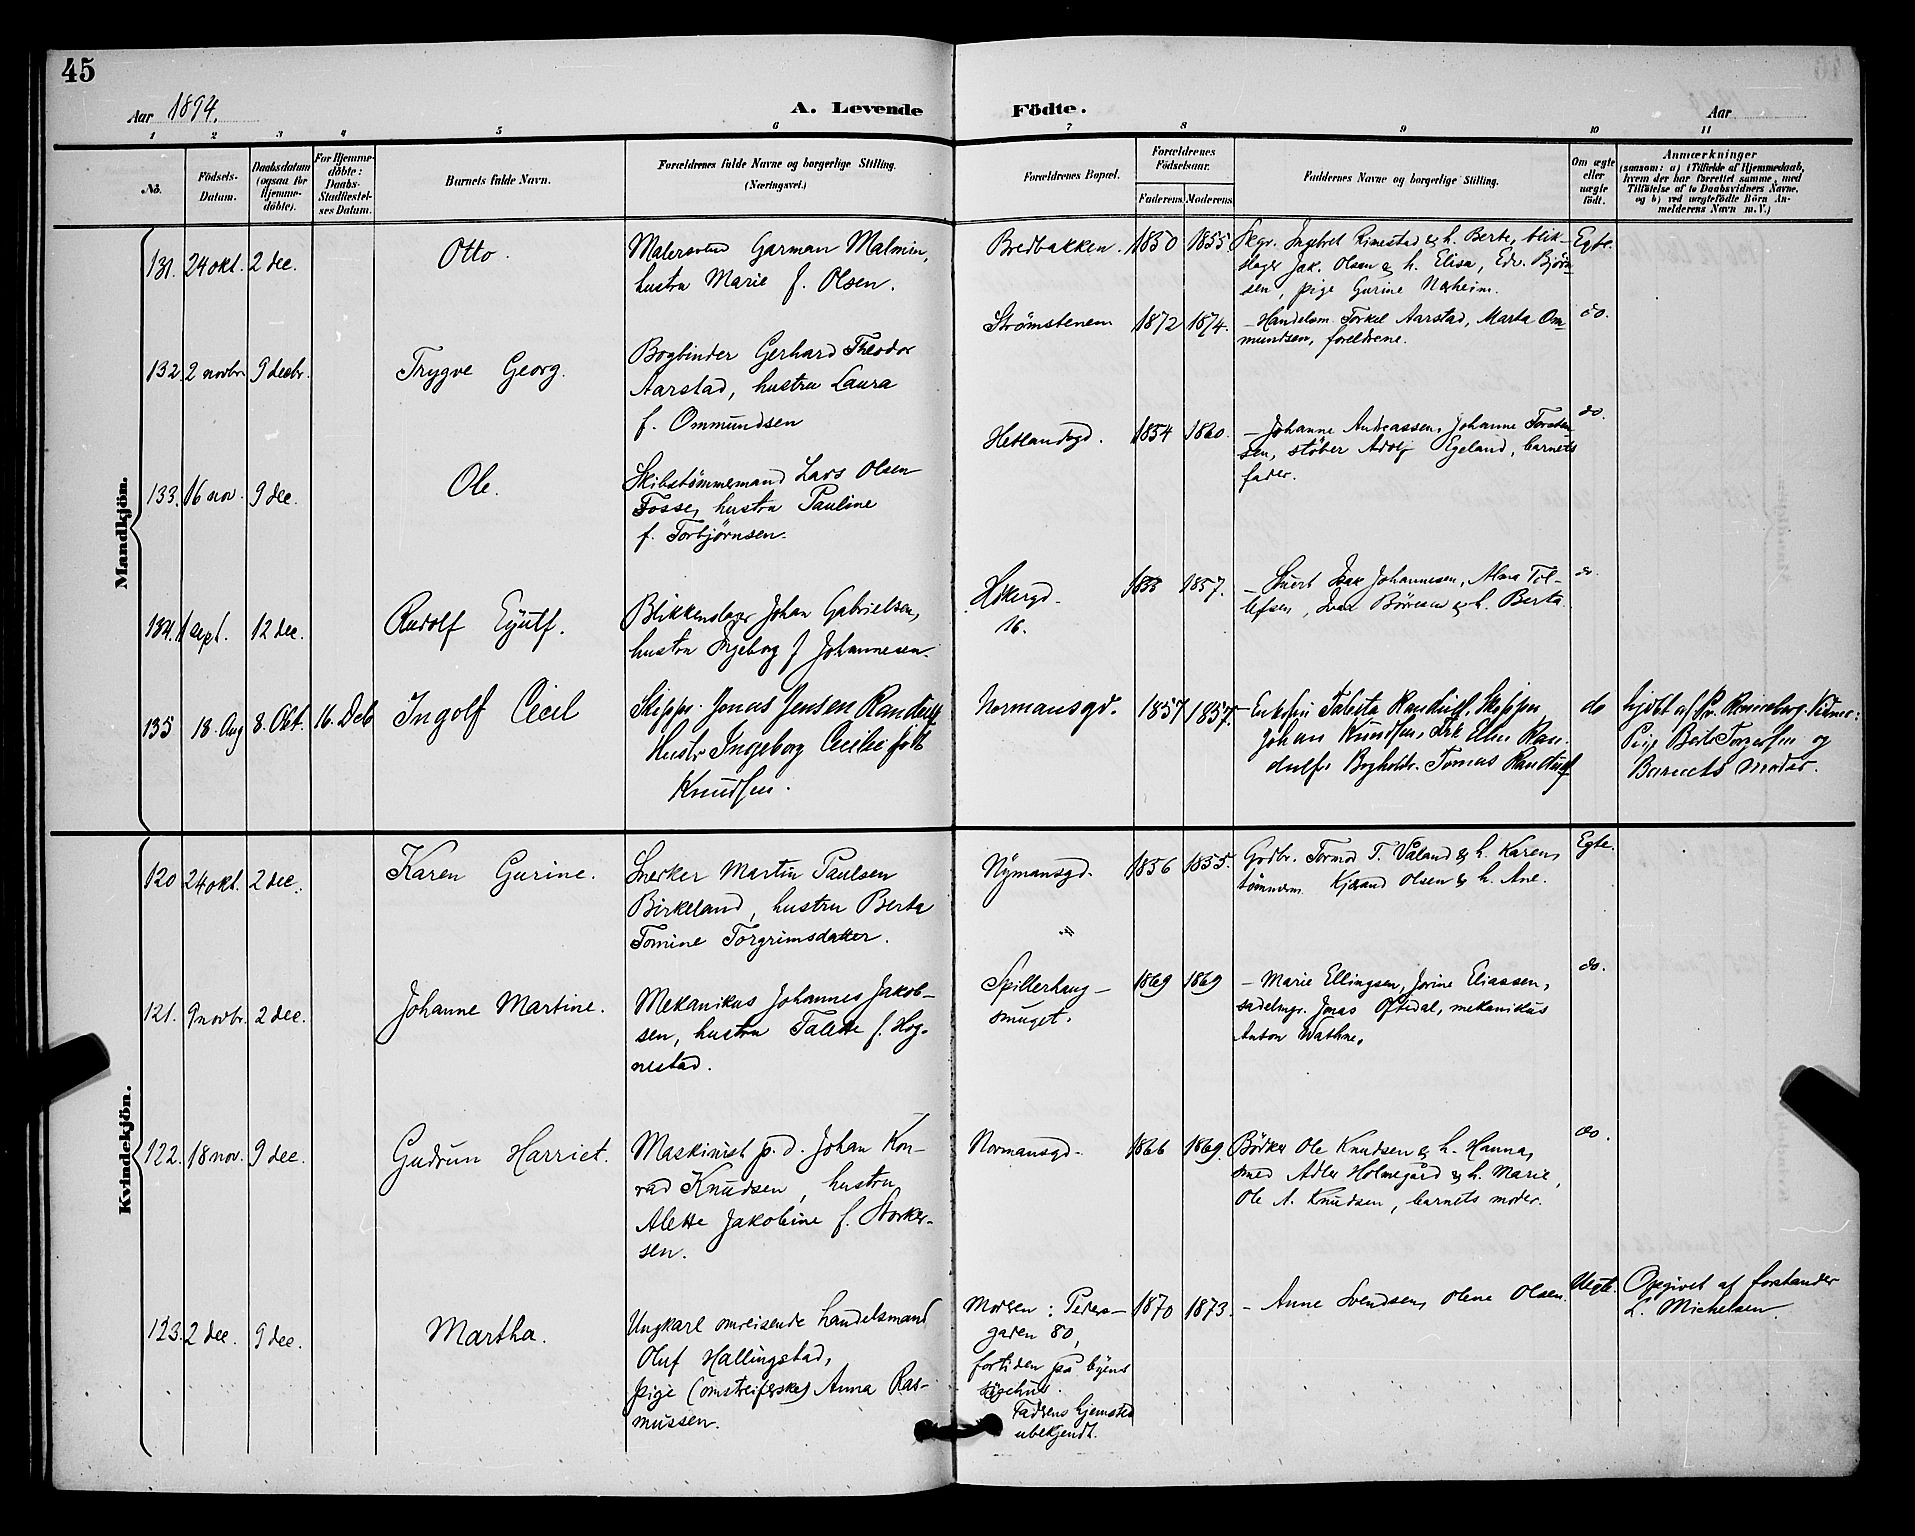 45
Aar 1894.
A. Levende Födte.
Aar
1 2 3 4 5 6 7 8 9 10 11
No.
Födsels-
Datum.
Daabsdatum
(ogsaa for
Hjemme-
döbte).
For Hjemme-
döbte:
Daabs-
Stadfæstel-
ses Datum.
Barnets fulde Navn.
Forældrenes fulde Navne og borgerlige Stilling.
(Næringsvei.)
Forældrenes Bopæl.
Forældrenes
Födselsaar.
Faderens Moderens
Faddernes Navne og borgerlige Stilling.
Om ægte
eller
uægte
födt.
Anmærkninger
(saasom: a) i Tilfælde af Hjemmedaab,
hvem der har forrettet samme, med
Tilföielse af to Daabsvidners Navne,
og b) ved uægtefödte Börn An-
melderens Navn m. V.)
Mandkjön.
131. 24 okt. 2 dec.
Otto.
Malersvend Garman Malmin,
hustru Marie f. Olsen.
Bredbakken. 1850 1855.
Skgr. Ingebret Rimestad & h. Berte, blik-
slager Jak. Olsen & h. Elisa, Edv. Bjørn-
sen, pige Gurine Nærheim.
Egte.
132. 2 novbr. 9 decbr.
Trygve Georg.
Bogbinder Gerhard Theodor
Aarstad, hustru Laura
f. Ommundsen
Strømstenen 1872 1874.
– Handelsm. Torkel Aarstad, Marta Om-
mundsen, foreldrene.
do.
133. 16 nov. 9 dec.
Ole.
Skibstømmermand Lars Olsen
Fosse, hustru Pauline
f. Torbjørnsen.
Hetlandsgd. 1854 1860.
– Johanne Andreassen, Johanne Torsten-
sen, støber Adolf Egeland, barnets
fader.
do.
134. 1 sept. 12 dec.
Rudolf Eyulf.
Blikkenslager Johan Gabrielsen,
hustru Ingeborg f Johannesen.
Høkergd.
16.
1855 1857.
– Isak Johannesen, Alma Tol-
lefsen, Ivar Børesen & h. Berta
do.
135 18. Aug 8. Okt. 16. Deb
Ingolf Cecil
Skipper Jonas Jensen Randulf
Hustr Ingeborg Cecilie født
Knudsen.
Normansgd. 1857 1857.
– Talette Randulf, Skipper
Johan Knudsen, Frk Elen Ran-
dulf, Bogholdr. Tomas Randulf
do
hjdbt af Pr. Vidner:
Pige Berte Torgersen og
Barnets Moder.
Kvindekjön.
120 24 okt. 2 dec.
Karen Gurine.
Snerker Martin Paulsen
Birkeland, hustru Berta
Tomine Torgrimsdatter.
Nymansgd. 1856 1855.
Grdbr. Tormod T. Våland & h. Karen,
tømmerm. Kjørand Olsen & h. Ane.
Egte.
"
121. 9 novbr. 2 dec.
Johanne Martine.
Mekanikus Johannes Jakob-
sen, hustru Talette f. Hog-
nestad.
Spillerhaug-
smuget.
1869 1869
– Marie Ellingsen, Jorine Eliassen,
sadelmgr. Jonas Oftedal, mekanikus
Anton Wathne,
do.
122. 18 nov. 9 dec.
Gudrun Harriet.
Maskinist p. d. Johan Kon-
rad Knudsen, hustru
Alette Jakobine f. Storker-
sen.
Normansgd. 1866 1869.
Bødker Ole Knudsen & h. Hanna,
smed Adler Holmegård & h. Marie,
Ole A. Knudsen, barnets moder.
do.
123. 2 dec. 9 dec.
Martha.
Ungkarl omreisende handelsmand
Oluf Hallingstad,
pige (omstreiferske) Anna Ras-
mussen.
Modren: Peders-
gaden 80,
fortiden på byens
sygehus.
Fadrens hjemsted
ubekjendt.
1870 1873.
– Anne Svendsen, Olene Olsen.
Uegte.
Opgivet af forstander
L. Michelsen.